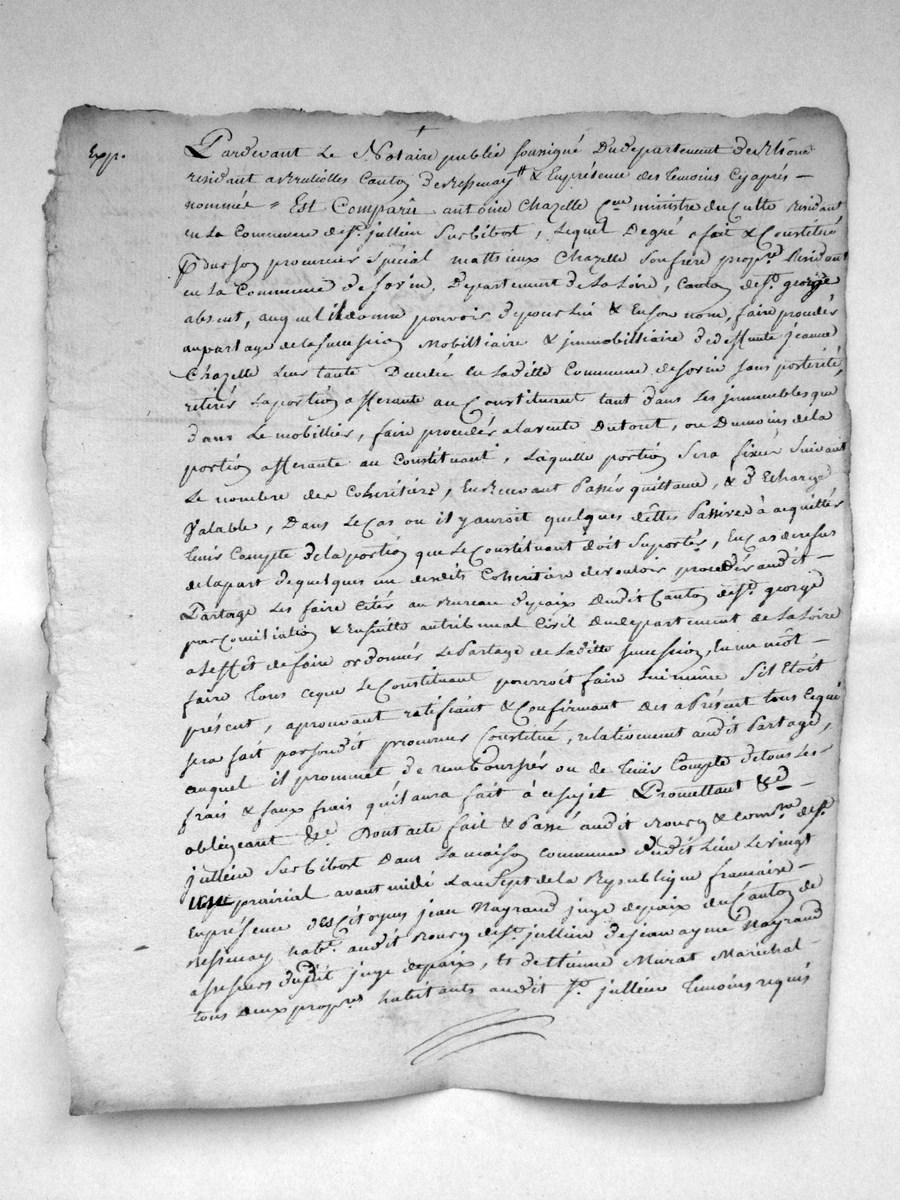 Exp.
Pardevant Le Notaire public soussigné Du departement du Rhône
residant a Brulliolles Canton de Bessenay & En présence des temoins Cy après
nommés = Est Comparû antoine Chazelle Cen ministre du Culte Residant
en La Commune de St. jullien Sur Bibost, Lequel De gré a fait & Constitué
pour son procureur Spécial matthieux Chazelle Son frere propre. Residant
en La Commune de Sorin, Departement de La Loire, Canton de St. george
absent, auquel il donne pouvoir de pour Lui & En son nom, faire proceder
au partage de la succession mobilliaire & immobilliaire de deffunte jeanne
Chazelle Leur tante Decedée en Laditte Commune de Sorin sans posterité,
retirer La portion afferante au Constituant tant dans Les immeubles que
dans Le mobillier, faire proceder a la vente Du tout, ou Du moins de la
portion afferante au Constituant, Laquelle portion Sera fixée Suivant
Le nombre des Coheritiers, En Recevant Passer quittance, & D Echarge
Valable, Dans Le Cas ou il y auroit quelques dettes Passives à acquitter
tenir Compte de la portion que Le Constituant doit Suporter, En Cas de refus
de la part de quelques un desdits Coheritiers de vouloir proceder audit
Partage Les faire citer au Bureau de paix dudit Canton de St. george
par Conciliation & Ensuitte au tribunal Civil du departement de La Loire
a L'effet de faire ordonner Le Partage de Laditte succession, En un mot
faire tous ce que Le Constituant pourroit faire Lui même S'il Etoit
présent, aprouvant ratifiant & Confirmant des a Présent tous Ce qui
sera fait par sondit procureur Constitué, relativement audit Partage,
auquel il prommet de rembourser ou de tenir Compte de tous Les
frais & faux frais qu'il aura fait à ce sujet Promettant &a
obligeant &a Dont acte fait & Passé audit Bourg & comune de St.
jullien Sur Bibost Dans La maison commune dudit Lieu Le vingt
prairial avant midi L'an Sept de la Republique francaise
En présence des Citoyens jean Nayrand juge de paix du Canton de
Bessenay habt. audit Bourg de St. jullien de jean aymé Nayrand
assesseur dudit juge de paix, & de Etienne Murat Maréchal
tous deux propres habitants audit St. jullien temoins requis